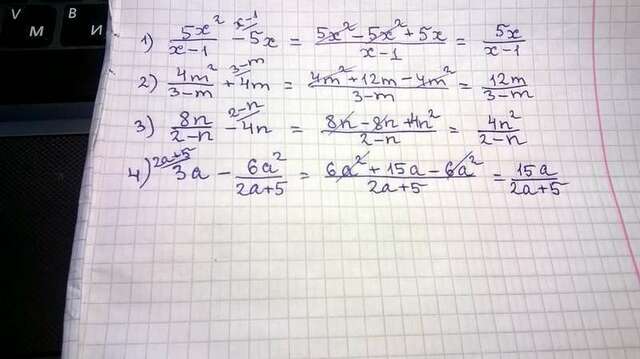 V M B И
1) 5x²/(x-1) - 5x^(x-1) = (5x² - 5x² + 5x)/(x-1) = 5x/(x-1)
2) 4m²/(3-m) + 4m^(3-m) = (4m² + 12m - 4m²)/(3-m) = 12m/(3-m)
3) 8n/(2-n) - 4n^(2-n) = (8n - 8n + 4n²)/(2-n) = 4n²/(2-n)
4) 3a^(2a+5) - 6a²/(2a+5) = (6a² + 15a - 6a²)/(2a+5) = 15a/(2a+5)